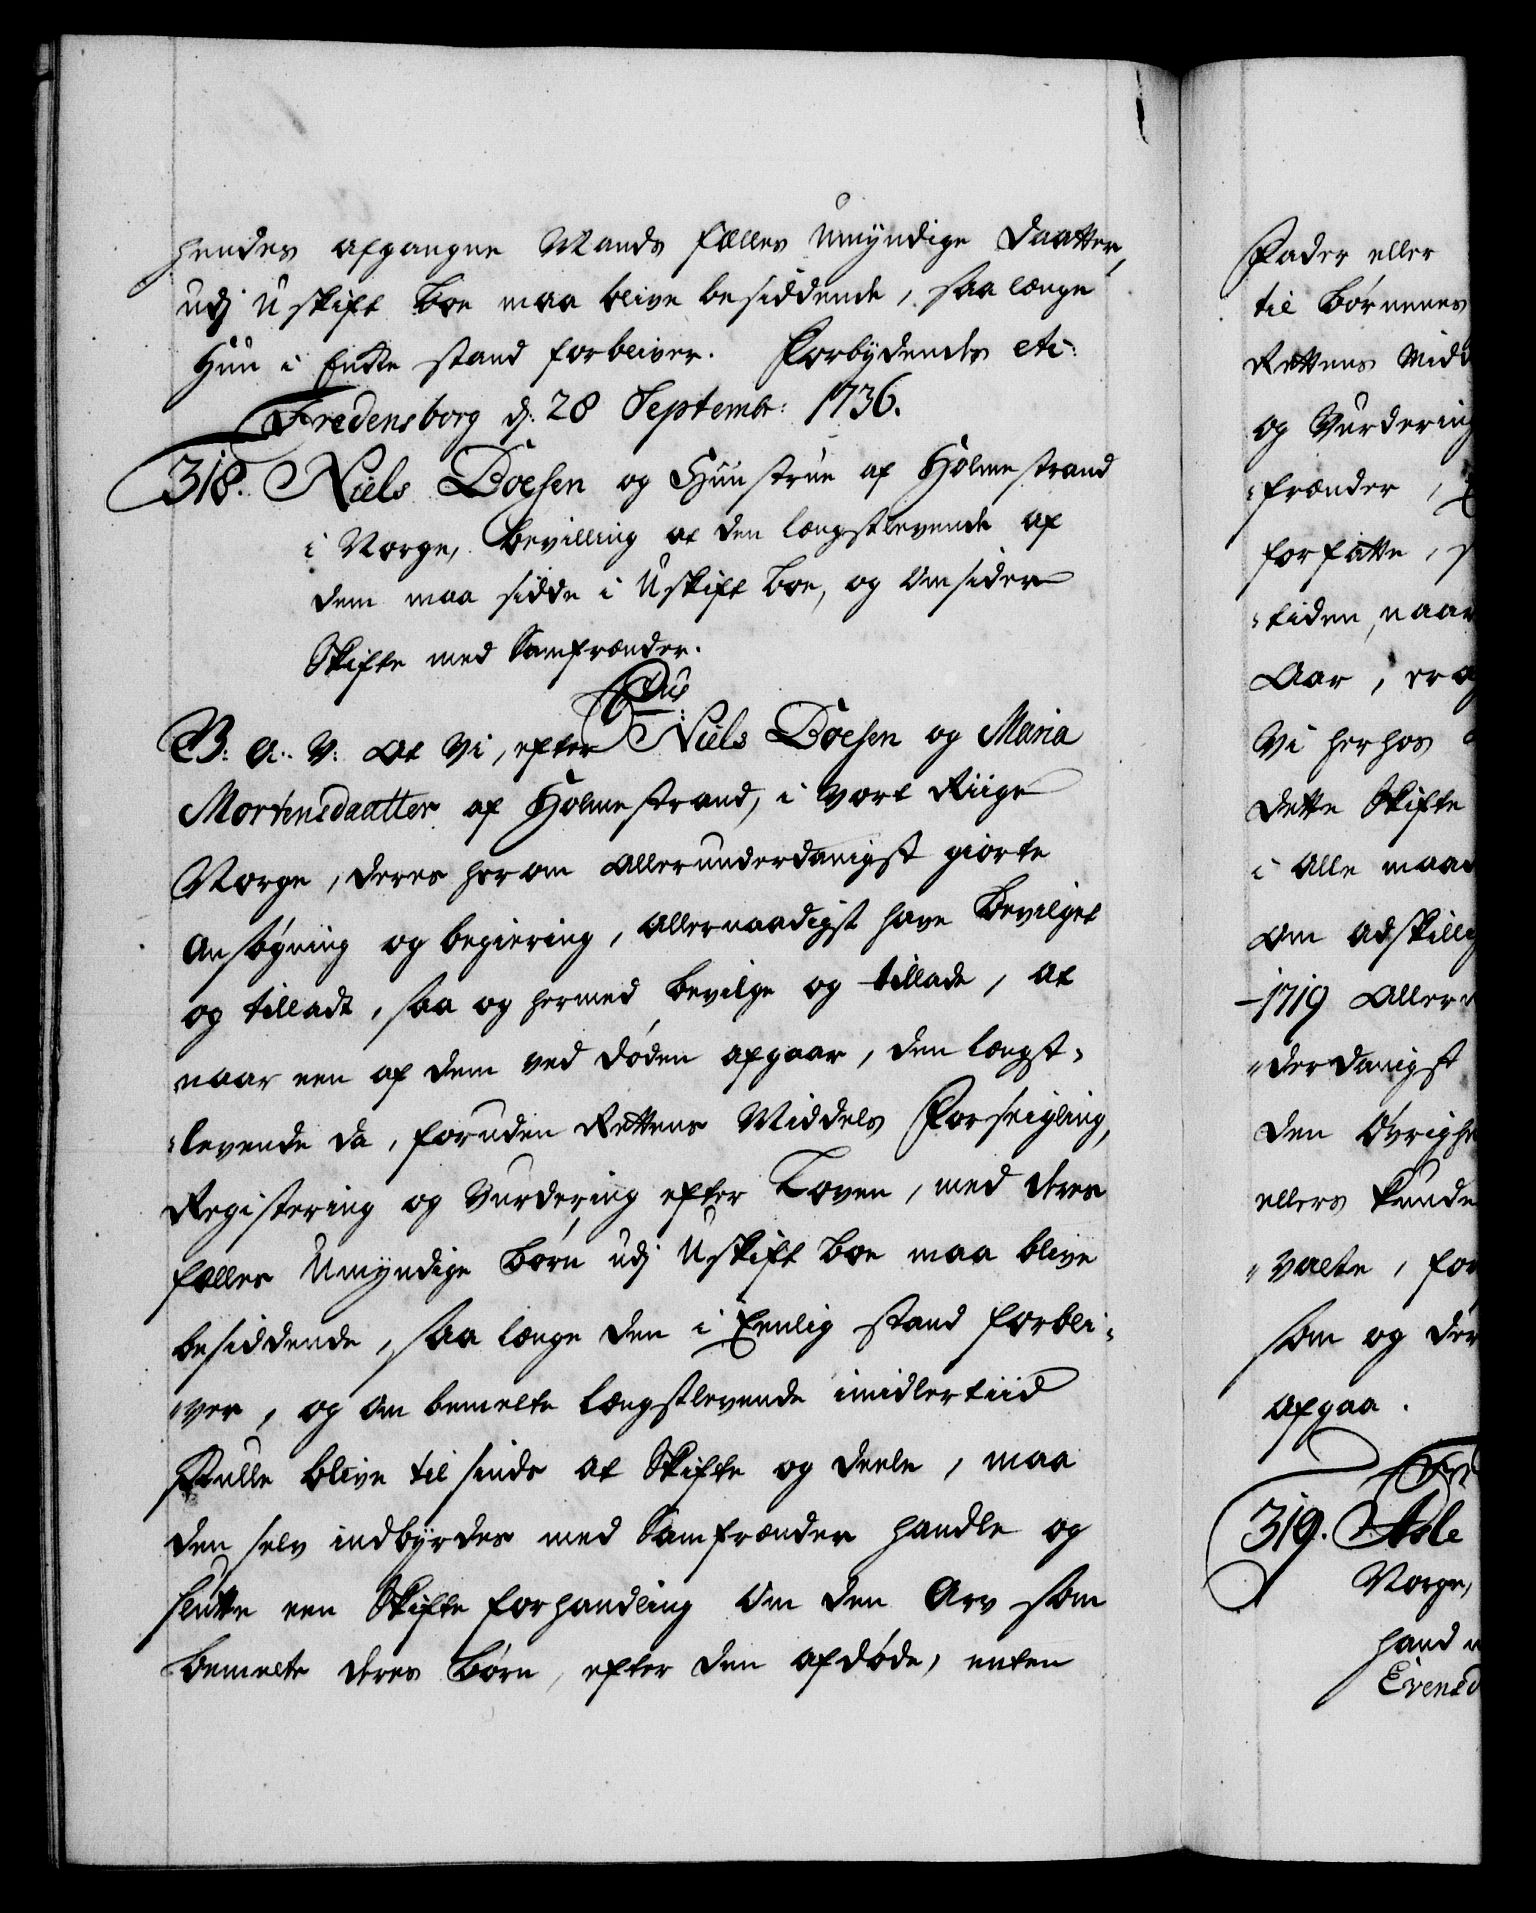 hendes afgangne Mands fælles umyndige Daatter,
udj Uskift Boe maa blive besiddende, saa længe
Hun i Enke stand forbliver. Forbydendes etc:
Fredensborg dj. 28 Septembr: 1736.
318. Niels Boesen og Huustrue af Holmestrand
i Norge, Bevilling at den længstlevende af
dem maa sidde i Uskift Boe, og omsider
Skifte med Samfrænder.
B. A. V. At Vi, efter Niels Boesen og Maria
Mortensdaatter af Holmestrand, i Vort Riige
Norge, deres herom allerunderdanigst giorte
Ansøgning og begiering, allernaadigst have bevilget
og tilladt, saa og hermed bevilge og tillade, at
naar een af dem ved døden afgaar, den længst-
levende da, foruden Rettens Middels Forseigling,
Registering og Vurdering efter Loven, med deres
fælles Umyndige Børn udj Uskift Boe maa blive
besiddende, saa længe den i Eenlig stand forbli-
ver, og om bemelte længstlevende imidlertiid
skulle blive til sinds at Skifte og deele, maa
den selv indbyrdes med Samfrænder handle og
slutte een Skifte forhandling om den Arv som
bemelte deres Børn, efter den afdøde, enten
Fader eller
til Børnenes
Rettens Midd
og Vurdering
frænder,
forfatte, s
tiden, naar
Aar, er
Vi herhos
dette Skifte
i alle maad
om adskillig
1719 Aller
derdanigst
den Øvrighe
ellers kunde
valte, for
som og der
afgaa.
319. Asle
Norge,
hand
Evensd